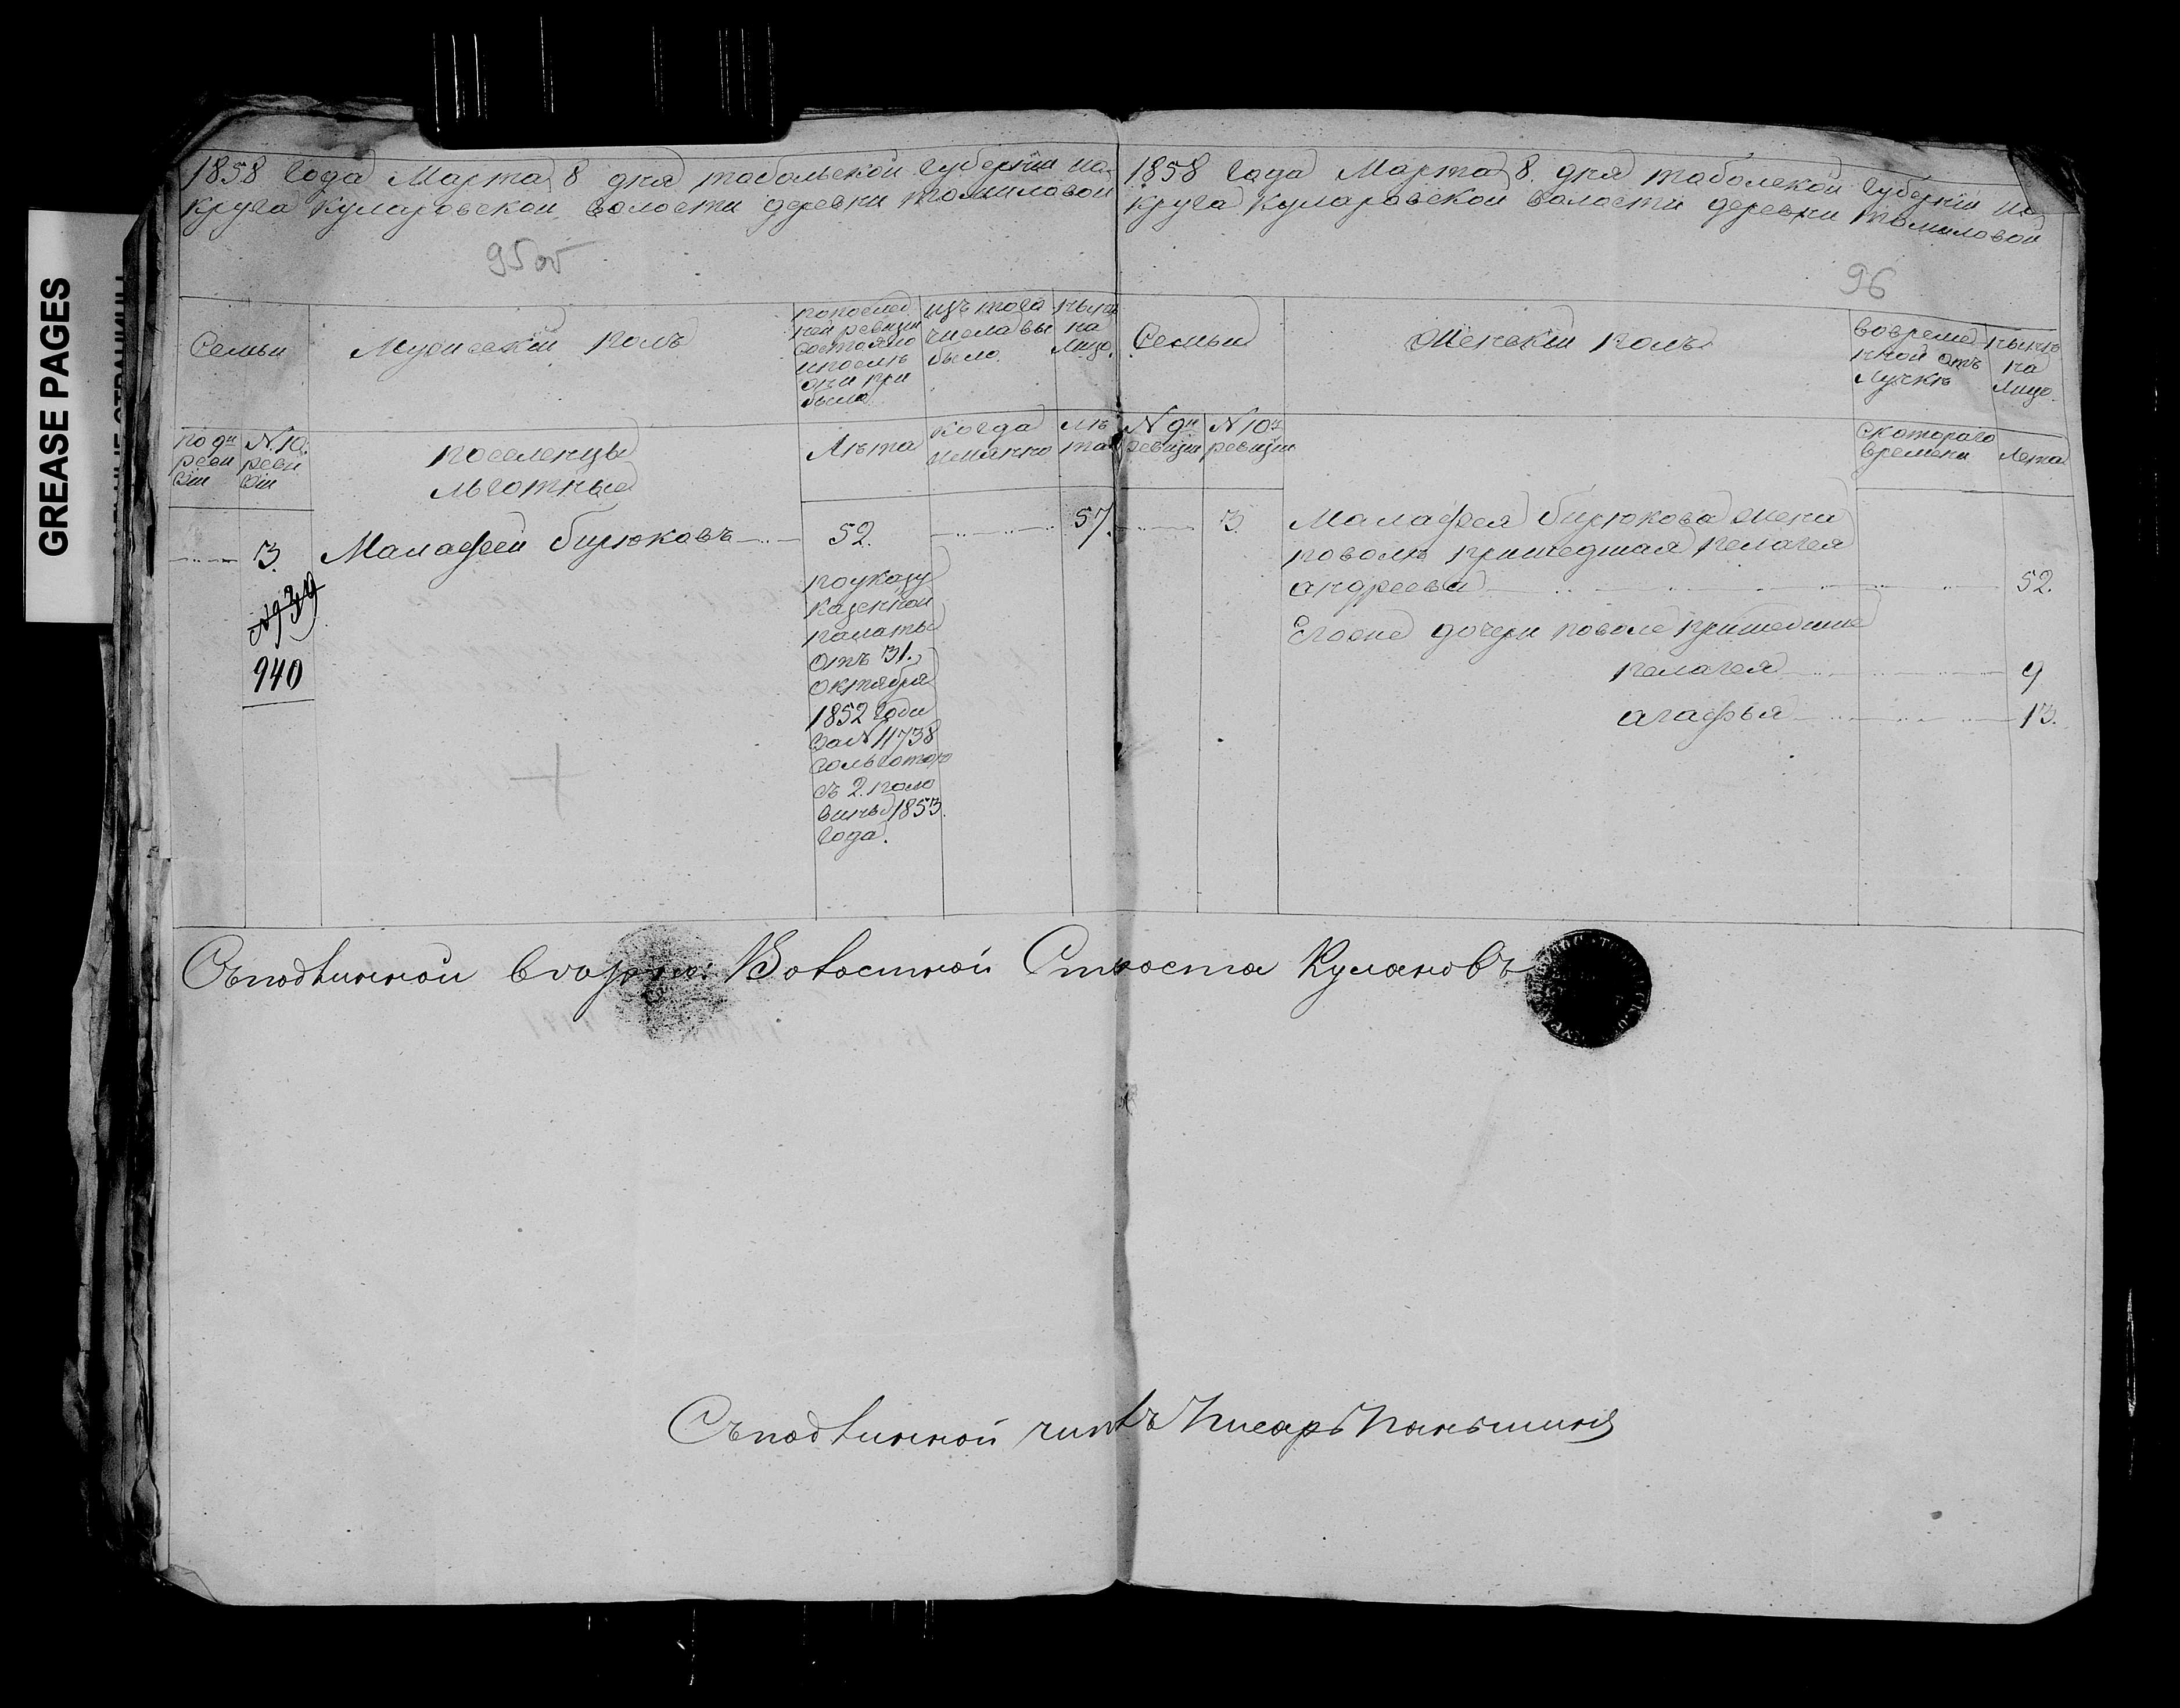 GREASE PAGES
1858 Года Марта 8 дня тобольской Губерніи
круга Куларовской волости деревни томиловой
95 об
Семьи
Мужескій полъ
попослед
ней ревизіи
состояло
ипослѣ
оной при
было
изъ того
числа вы
было
нынѣ
на
Лицо.
по 9й
реви
зіи
№ 10.
реви
зіи
поселенцы
льготные
Лѣта
когда
имянно
лѣ
та
3.
Малафей бирюковъ
52.
57.
№939
940
поуказу
казенной
палаты
отъ 31.
октября
1852 Года
за № 11738
сольготою
съ 2. поло
вины 1853
Года.
1858 Года Марта 8 дня тоболской Губерніи
круга Куларовской валости деревни томиловой
96
Семьи
Женскій полъ
вовреме
нной отъ
Лучкѣ
нынѣ
на
Лицо.
№ 9й
ревизіи
№ 10й
ревизіи
скотораго
времени
Лета
3
Малафея бирюкова жена
поволѣ пришедшая пелагея
андреева 52.
Егоже дочери поволе пришедшие
пелагея 9
агафья 13.
Съподлинной Волостной Староста Кулаковъ
Съподлинной читалъ Писарь Паньшинъ